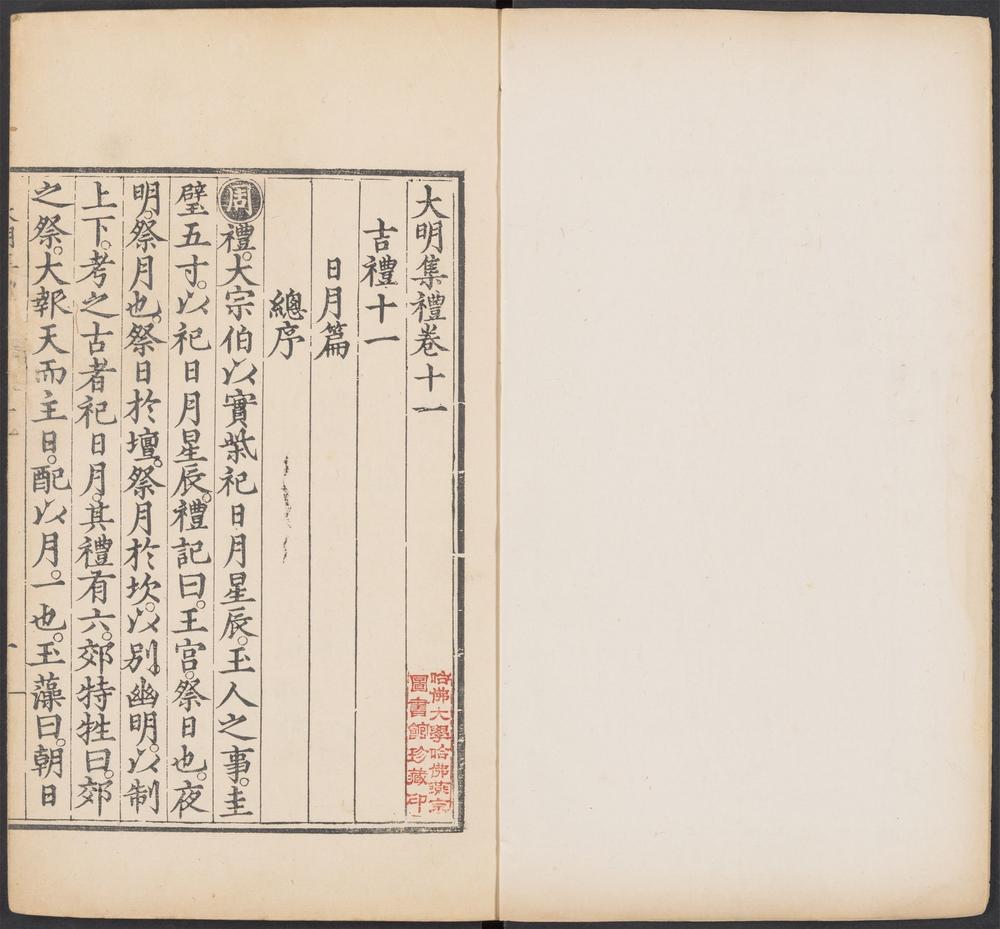 大明集禮卷十一
吉禮十一
日月篇
總序
周禮。大宗伯以實柴祀日月星辰。玉人之事。圭
璧五寸。以祀日月星辰。禮記曰。王宮。祭日也。夜
明。祭月也。祭日於壇。祭月於坎。以別幽明。以制
上下。考之古者祀日月。其禮有六。郊特牲曰。郊
之祭。大報天而主日。配以月。一也。玉藻曰。朝日
哈佛大學哈佛燕京
圖書館珍藏印